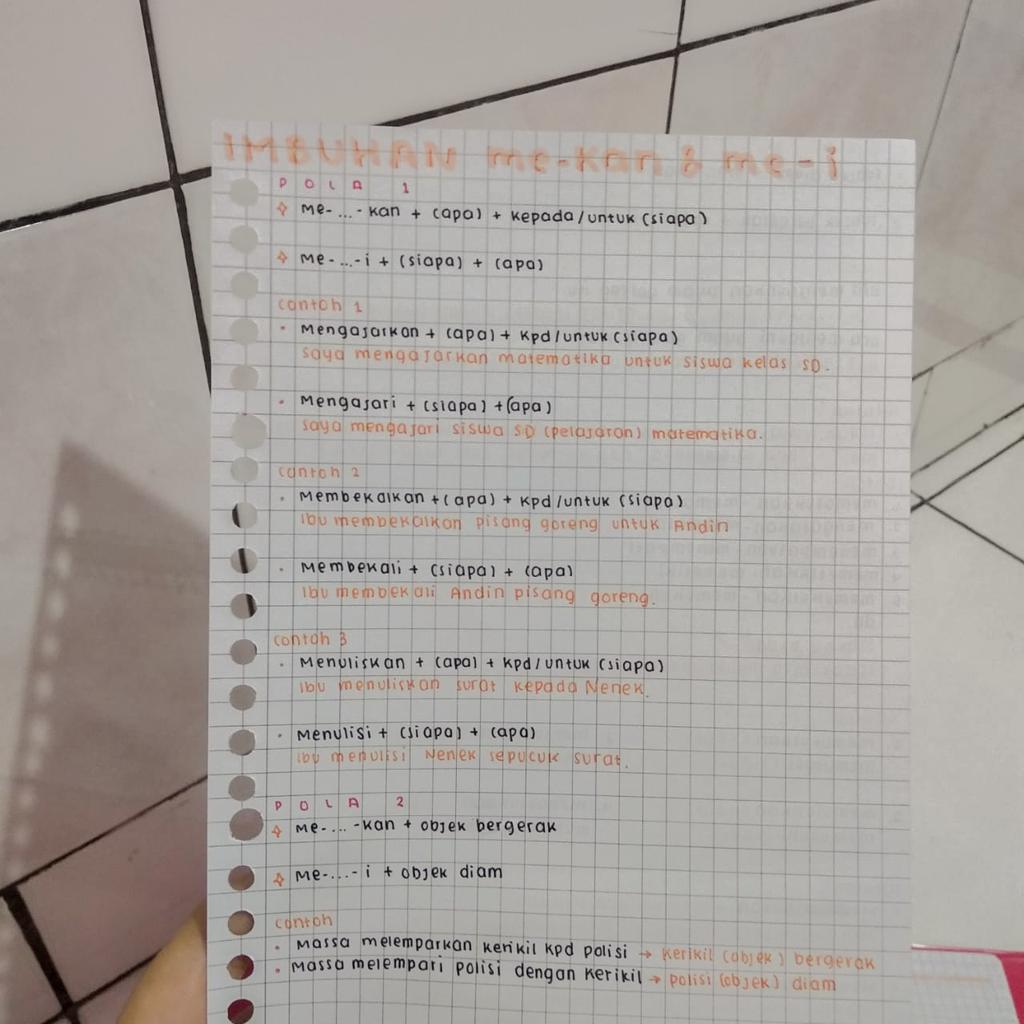 IMBUHAN me-kan & me-i
POLA 1
✧ Me-...-kan + (apa) + kepada/untuk (siapa)
✧ Me-...-i + (siapa) + (apa)
contoh 1
• Mengajarkan + (apa) + kpd/untuk (siapa)
saya mengajarkan matematika untuk siswa kelas SD.
• Mengajari + (siapa) + (apa)
saya mengajari siswa SD (pelajaran) matematika.
contoh 2
• Membekalkan + (apa) + kpd/untuk (siapa)
Ibu membekalkan pisang goreng untuk Andin
• Membekali + (siapa) + (apa)
Ibu membekali Andin pisang goreng.
contoh 3
• Menuliskan + (apa) + kpd/untuk (siapa)
Ibu menuliskan surat kepada Nenek.
• Menulisi + (siapa) + (apa)
Ibu menulisi Nenek sepucuk surat.
POLA 2
✧ Me-...-kan + objek bergerak
✧ Me-...-i + objek diam
contoh
• Massa melemparkan kerikil kpd polisi → kerikil (objek) bergerak
• Massa melempari polisi dengan kerikil → polisi (objek) diam